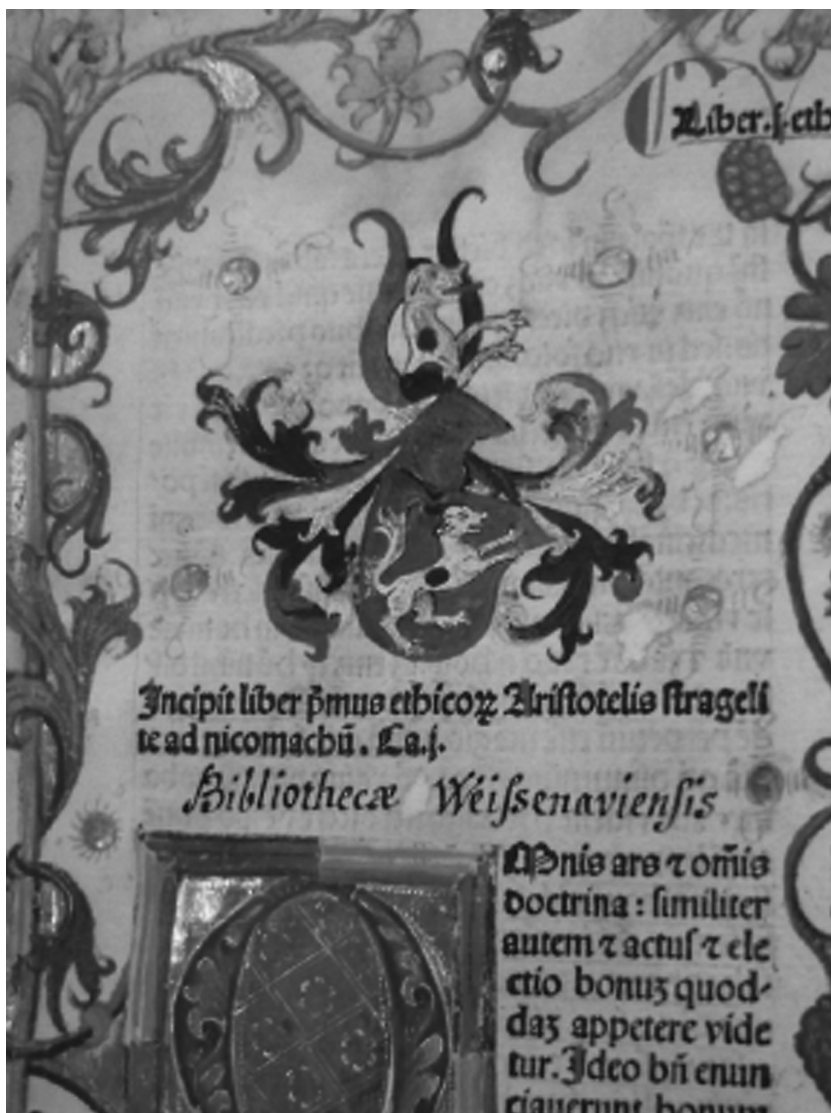 Liber .j. eth
Incipit liber p̄mus ethicoꝝ Aristotelis strageli
te ad nicomachū. Ca.j.
Bibliothecæ Weissenaviensis
Omnis ars ⁊ om̄is
doctrina : similiter
autem ⁊ actus ⁊ ele
ctio bonuʒ quod-
daʒ appetere vide
tur. Ideo bn̄ enun
ciauerunt bonum